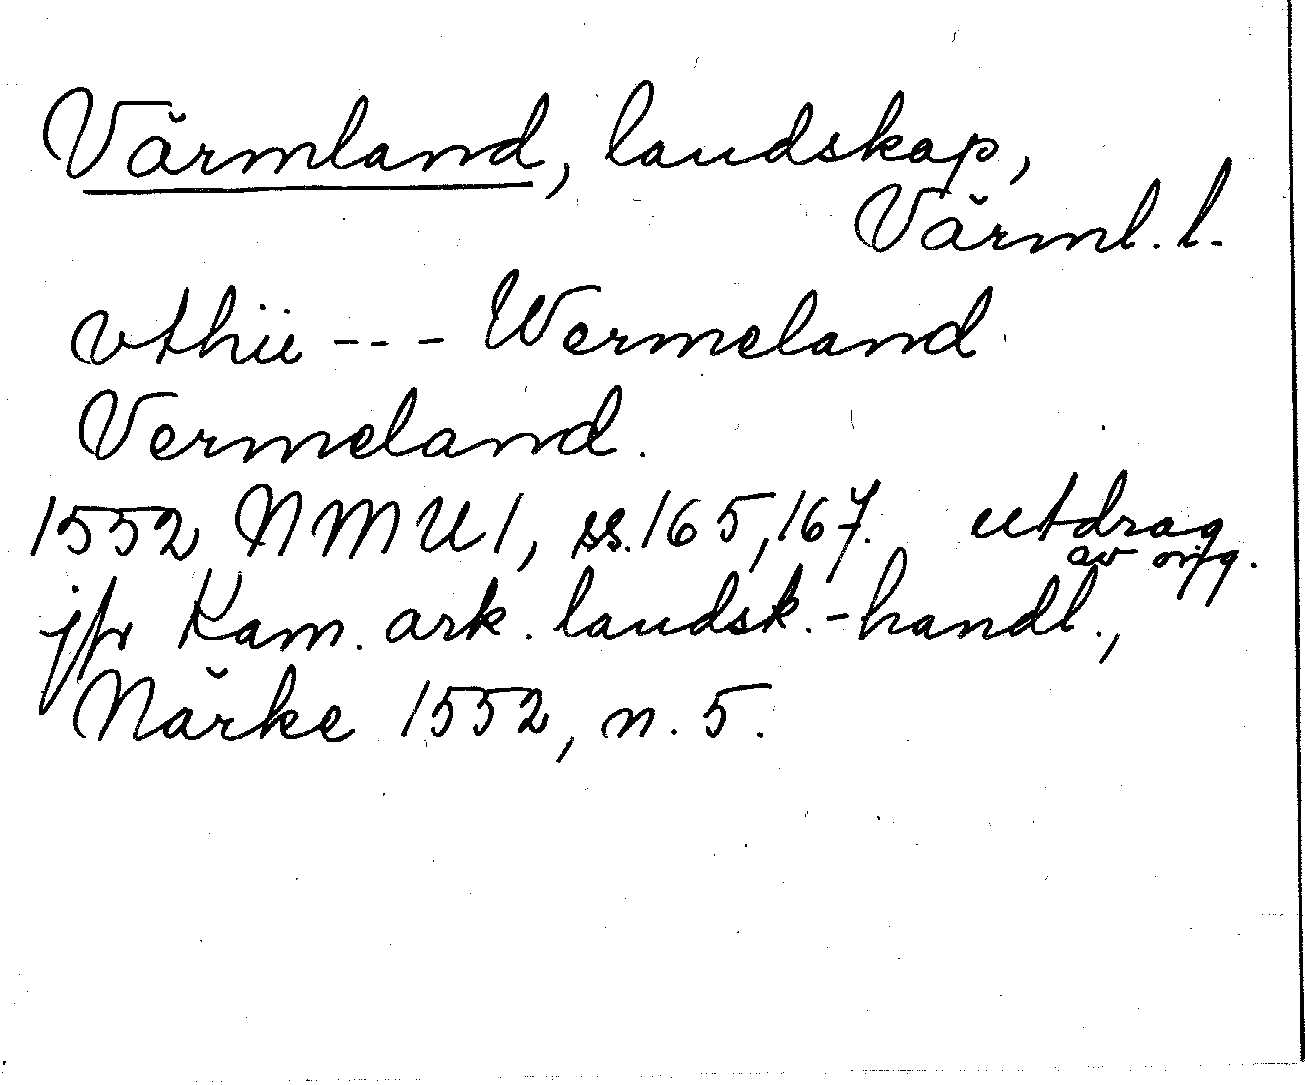 Värmland, landskap,
Värml. l.
vthii --- Wermeland
Vermeland.
1552 NMU1, ss. 165, 167. utdrag
av orig.
jfr Kam. ark. landsk.-handl.,
Närke 1552, n. 5.